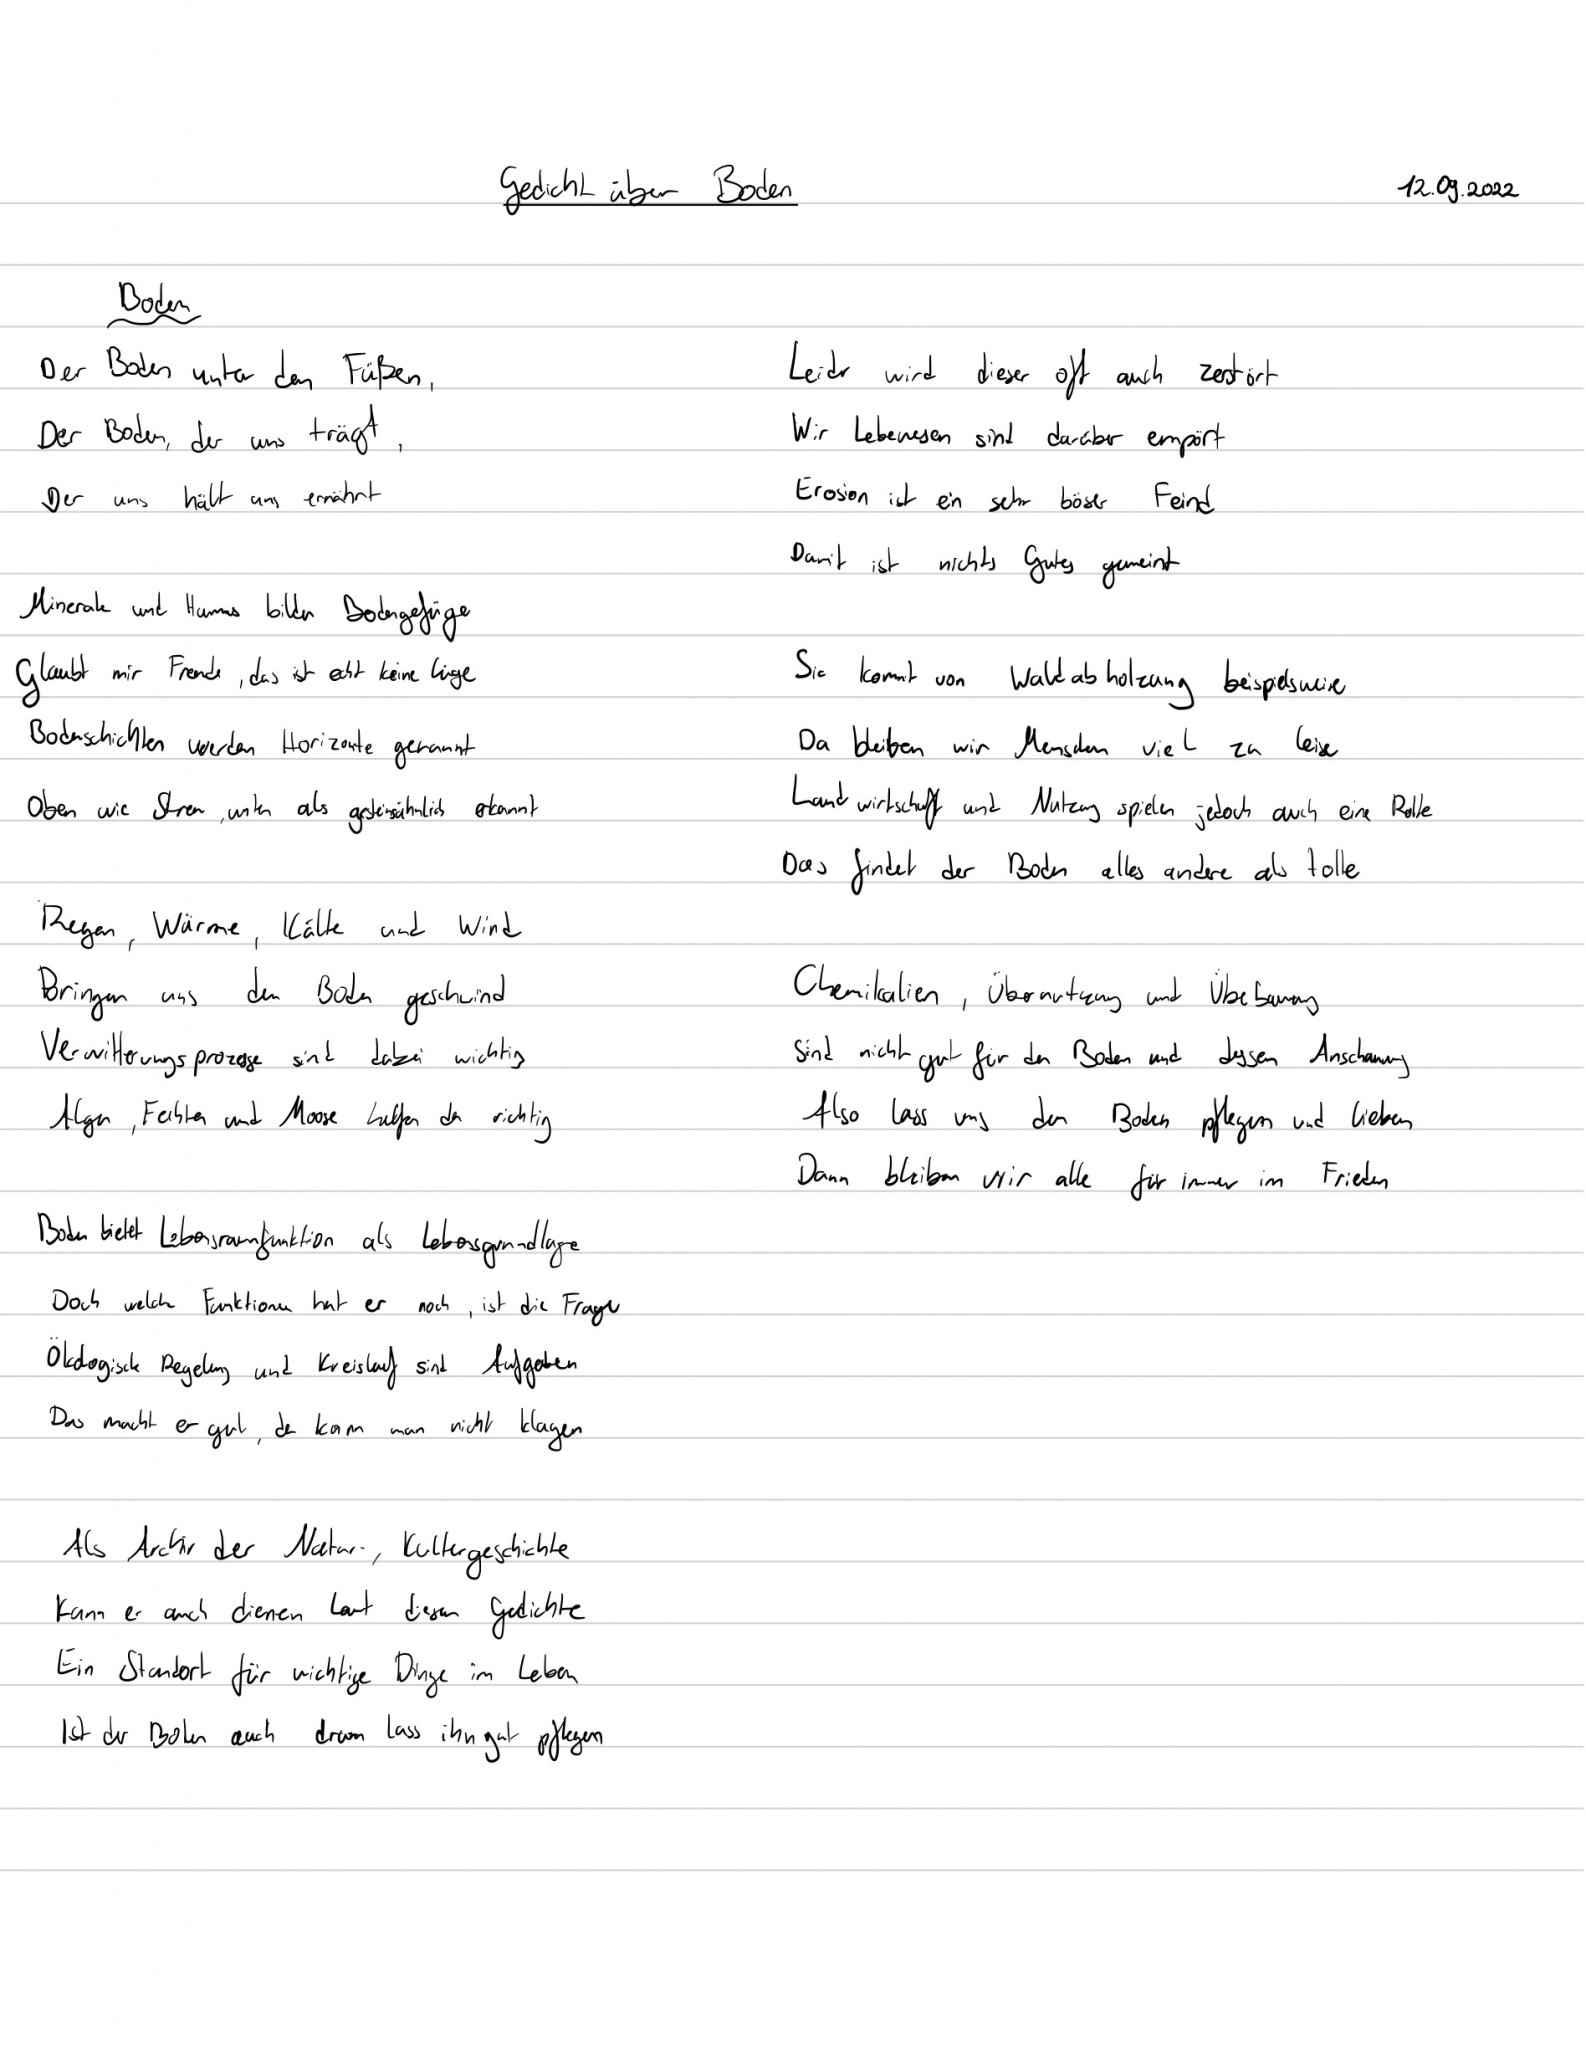 Gedicht über Boden
12.09.2022
Boden
Der Boden unter den Füßen,
Der Boden, der uns trägt,
Der uns hält uns ernährt
Minerale und Humus bilden Bodengefüge
Glaubt mir Freude, das ist echt keine Lüge
Bodenschichten werden Horizonte genannt
Oben wie Streu, unten als gesteinsähnlich erkannt
Regen, Wärme, Kälte und Wind
Bringen uns den Boden geschwind
Verwitterungsprozesse sind dabei wichtig
Algen, Flechten und Moose helfen da richtig
Boden bietet Lebensraumfunktion als Lebensgrundlage
Doch welche Funktionen hat er noch, ist die Frage
Ökologische Regelung und Kreislauf sind Aufgaben
Das macht er gut, da kann man nicht klagen
Als Archiv der Natur-, Kulturgeschichte
Kann er auch dienen laut diesem Gedichte
Ein Standort für wichtige Dinge im Leben
Ist der Boden auch drum lass ihn gut pflegen
Leider wird dieser oft auch zerstört
Wir Lebewesen sind darüber empört
Erosion ist ein sehr böser Feind
Damit ist nichts Gutes gemeint
Sie kommt von Waldabholzung beispielsweise
Da bleiben wir Menschen viel zu leise
Landwirtschaft und Nutzung spielen jedoch auch eine Rolle
Das findet der Boden alles andere als tolle
Chemikalien, Übernutzung und Überbauung
Sind nicht gut für den Boden und dessen Anschauung
Also lass uns den Boden pflegen und lieben
Dann bleiben wir alle für immer im Frieden